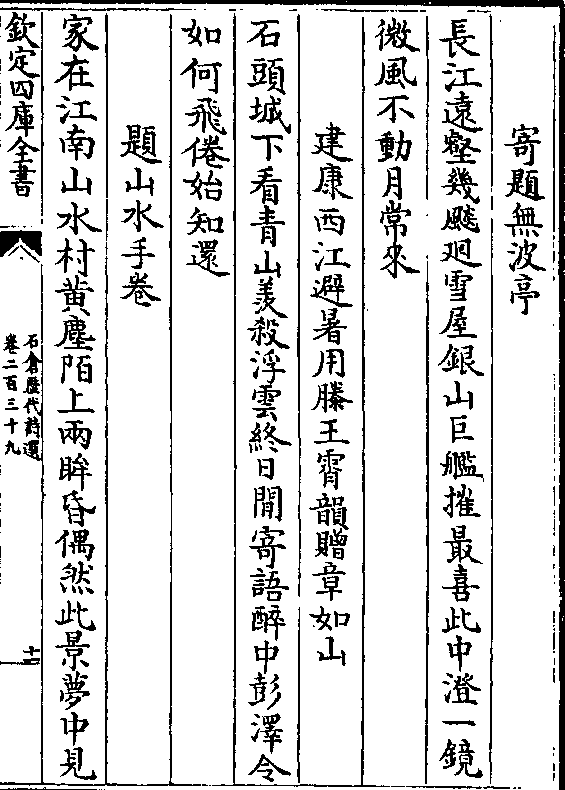 寄題無波亭
長江遠壑幾飈廻雪屋銀山巨艦摧最喜此中澄一鏡
微風不動月常來
建康西江避暑用滕王霄韻贈章如山
石頭城下看青山羡殺浮雲終日閒寄語醉中彭澤令
如何飛倦始知還
題山水手卷
家在江南山水村黄塵陌上兩眸昏偶然此景夢中見
欽定四庫全書
石倉歷代詩選
卷二百三十九
十二